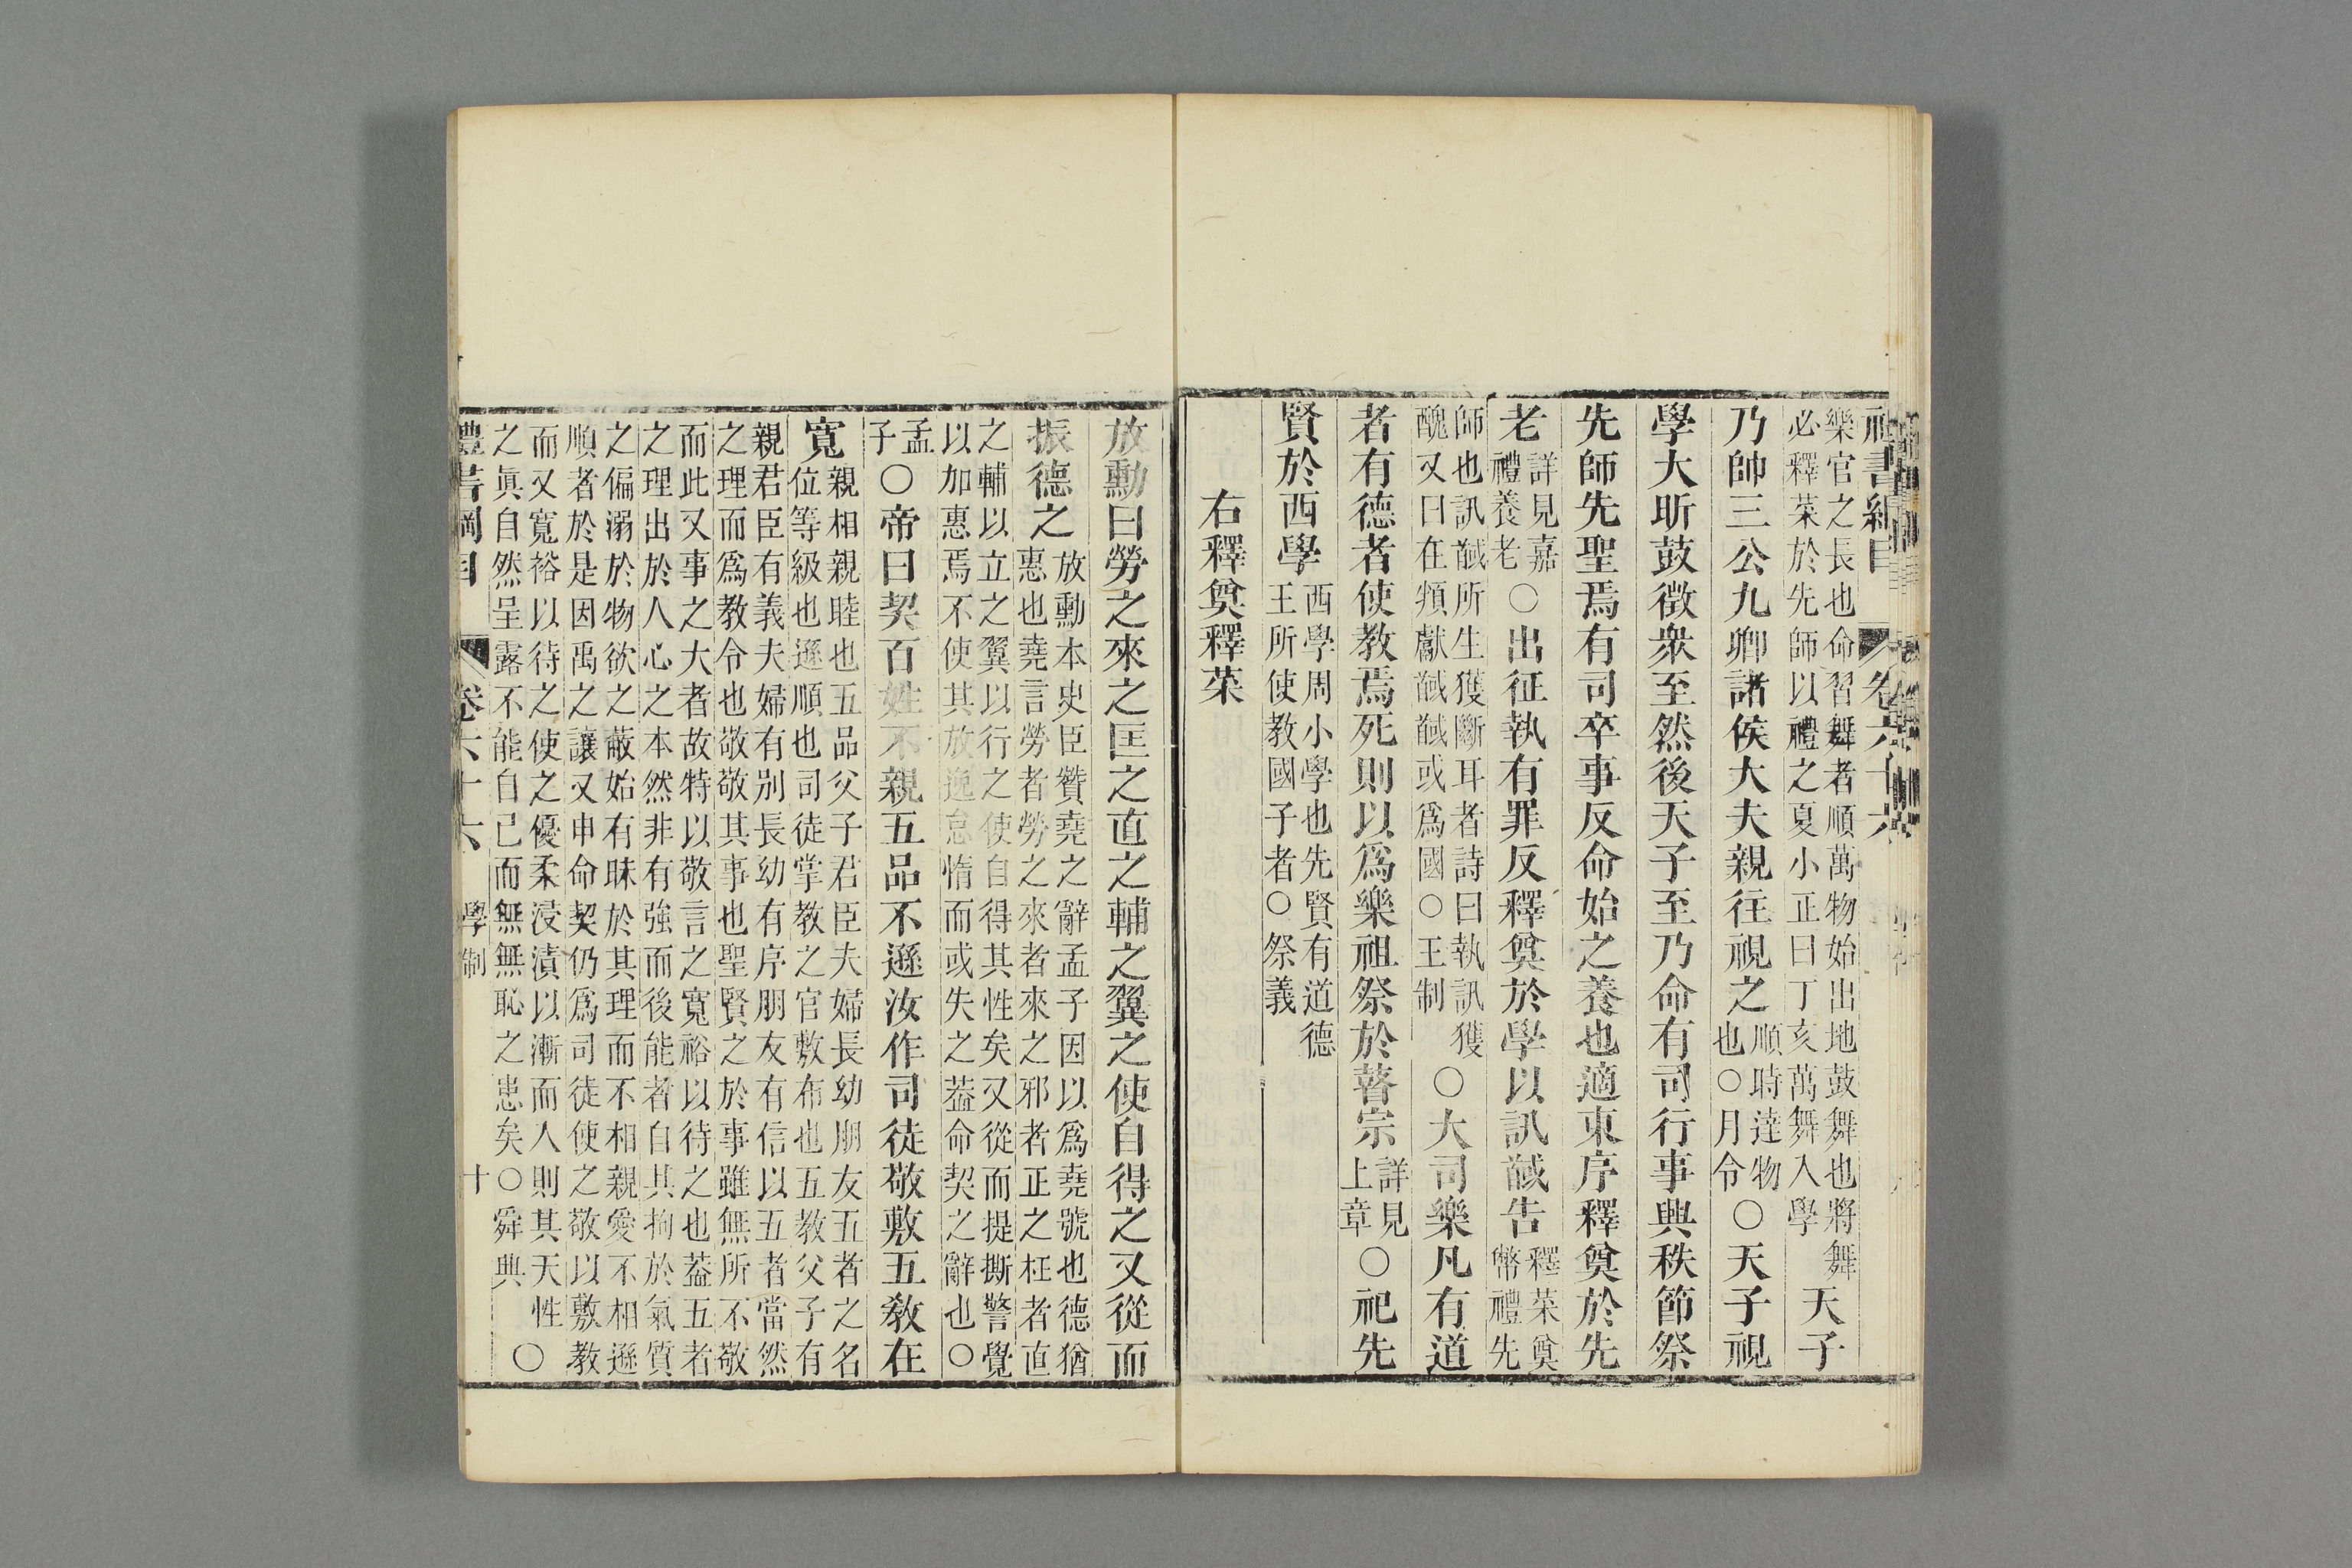 禮書綱目 卷六十六
樂官之長也命習舞者順萬物始出地鼓舞也將舞
必釋菜於先師以禮之夏小正曰丁亥萬舞入學
天子
乃帥三公九卿諸侯大夫親往視之
順時達物
也○月令
○天子視
學大昕鼓徵衆至然後天子至乃命有司行事興秩節祭
先師先聖焉有司卒事反命始之養也適東序釋奠於先
老
詳見嘉
禮養老
○出征執有罪反釋奠於學以訊馘告
釋菜奠
幣禮先
師也訊馘所生獲斷耳者詩曰執訊獲
醜又曰在頖獻馘馘或爲國○王制
○大司樂凡有道
者有德者使教焉死則以爲樂祖祭於瞽宗
詳見
上章
○祀先
賢於西學
西學周小學也先賢有道德
王所使教國子者○祭義
右釋奠釋菜
放勳曰勞之來之匡之直之輔之翼之使自得之又從而
振德之
放勳本史臣贊堯之辭孟子因以爲堯號也德猶
惠也堯言勞者勞之來者來之邪者正之枉者直
之輔以立之翼以行之使自得其性矣又從而提撕警覺
以加惠焉不使其放逸怠惰而或失之葢命契之辭也○
孟
子
○帝曰契百姓不親五品不遜汝作司徒敬敷五教在
寬
親相親睦也五品父子君臣夫婦長幼朋友五者之名
位等級也遜順也司徒掌教之官敷布也五教父子有
親君臣有義夫婦有別長幼有序朋友有信以五者當然
之理而爲教令也敬敬其事也聖賢之於事雖無所不敬
而此又事之大者故特以敬言之寬裕以待之也葢五者
之理出於人心之本然非有強而後能者自其拘於氣質
之偏溺於物欲之蔽始有昧於其理而不相親愛不相遜
順者於是因禹之讓又申命契仍爲司徒使之敬以敷教
而又寬裕以待之使之優柔浸漬以漸而入則其天性
之眞自然呈露不能自已而無無恥之患矣○舜典
○
禮書綱目 卷六十六 學制 十